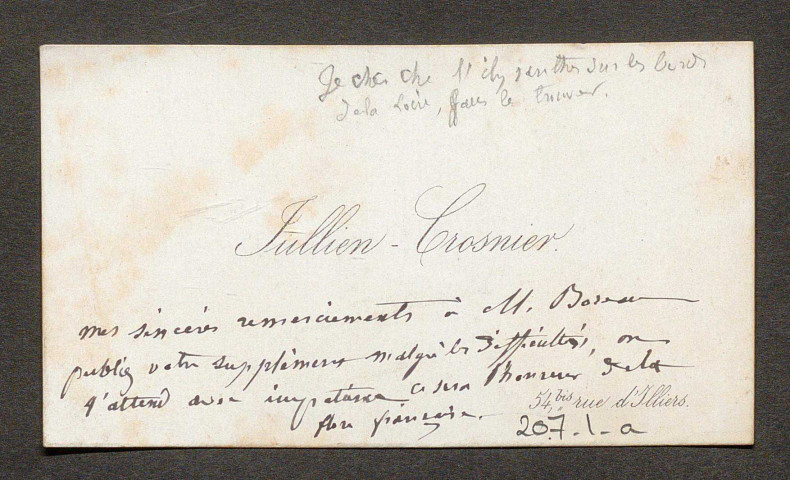 Je cherche l' sur les bords
de la Loire, sans le trouver.
Jullien - Crosnier.
mes sincères remerciements à M. Boreau
publiez votre supplément malgré les difficultés, on
l'attend avec impatience ce sera l'honneur de la
flore française.
54, bis rue d'Illiers.
207-1-a